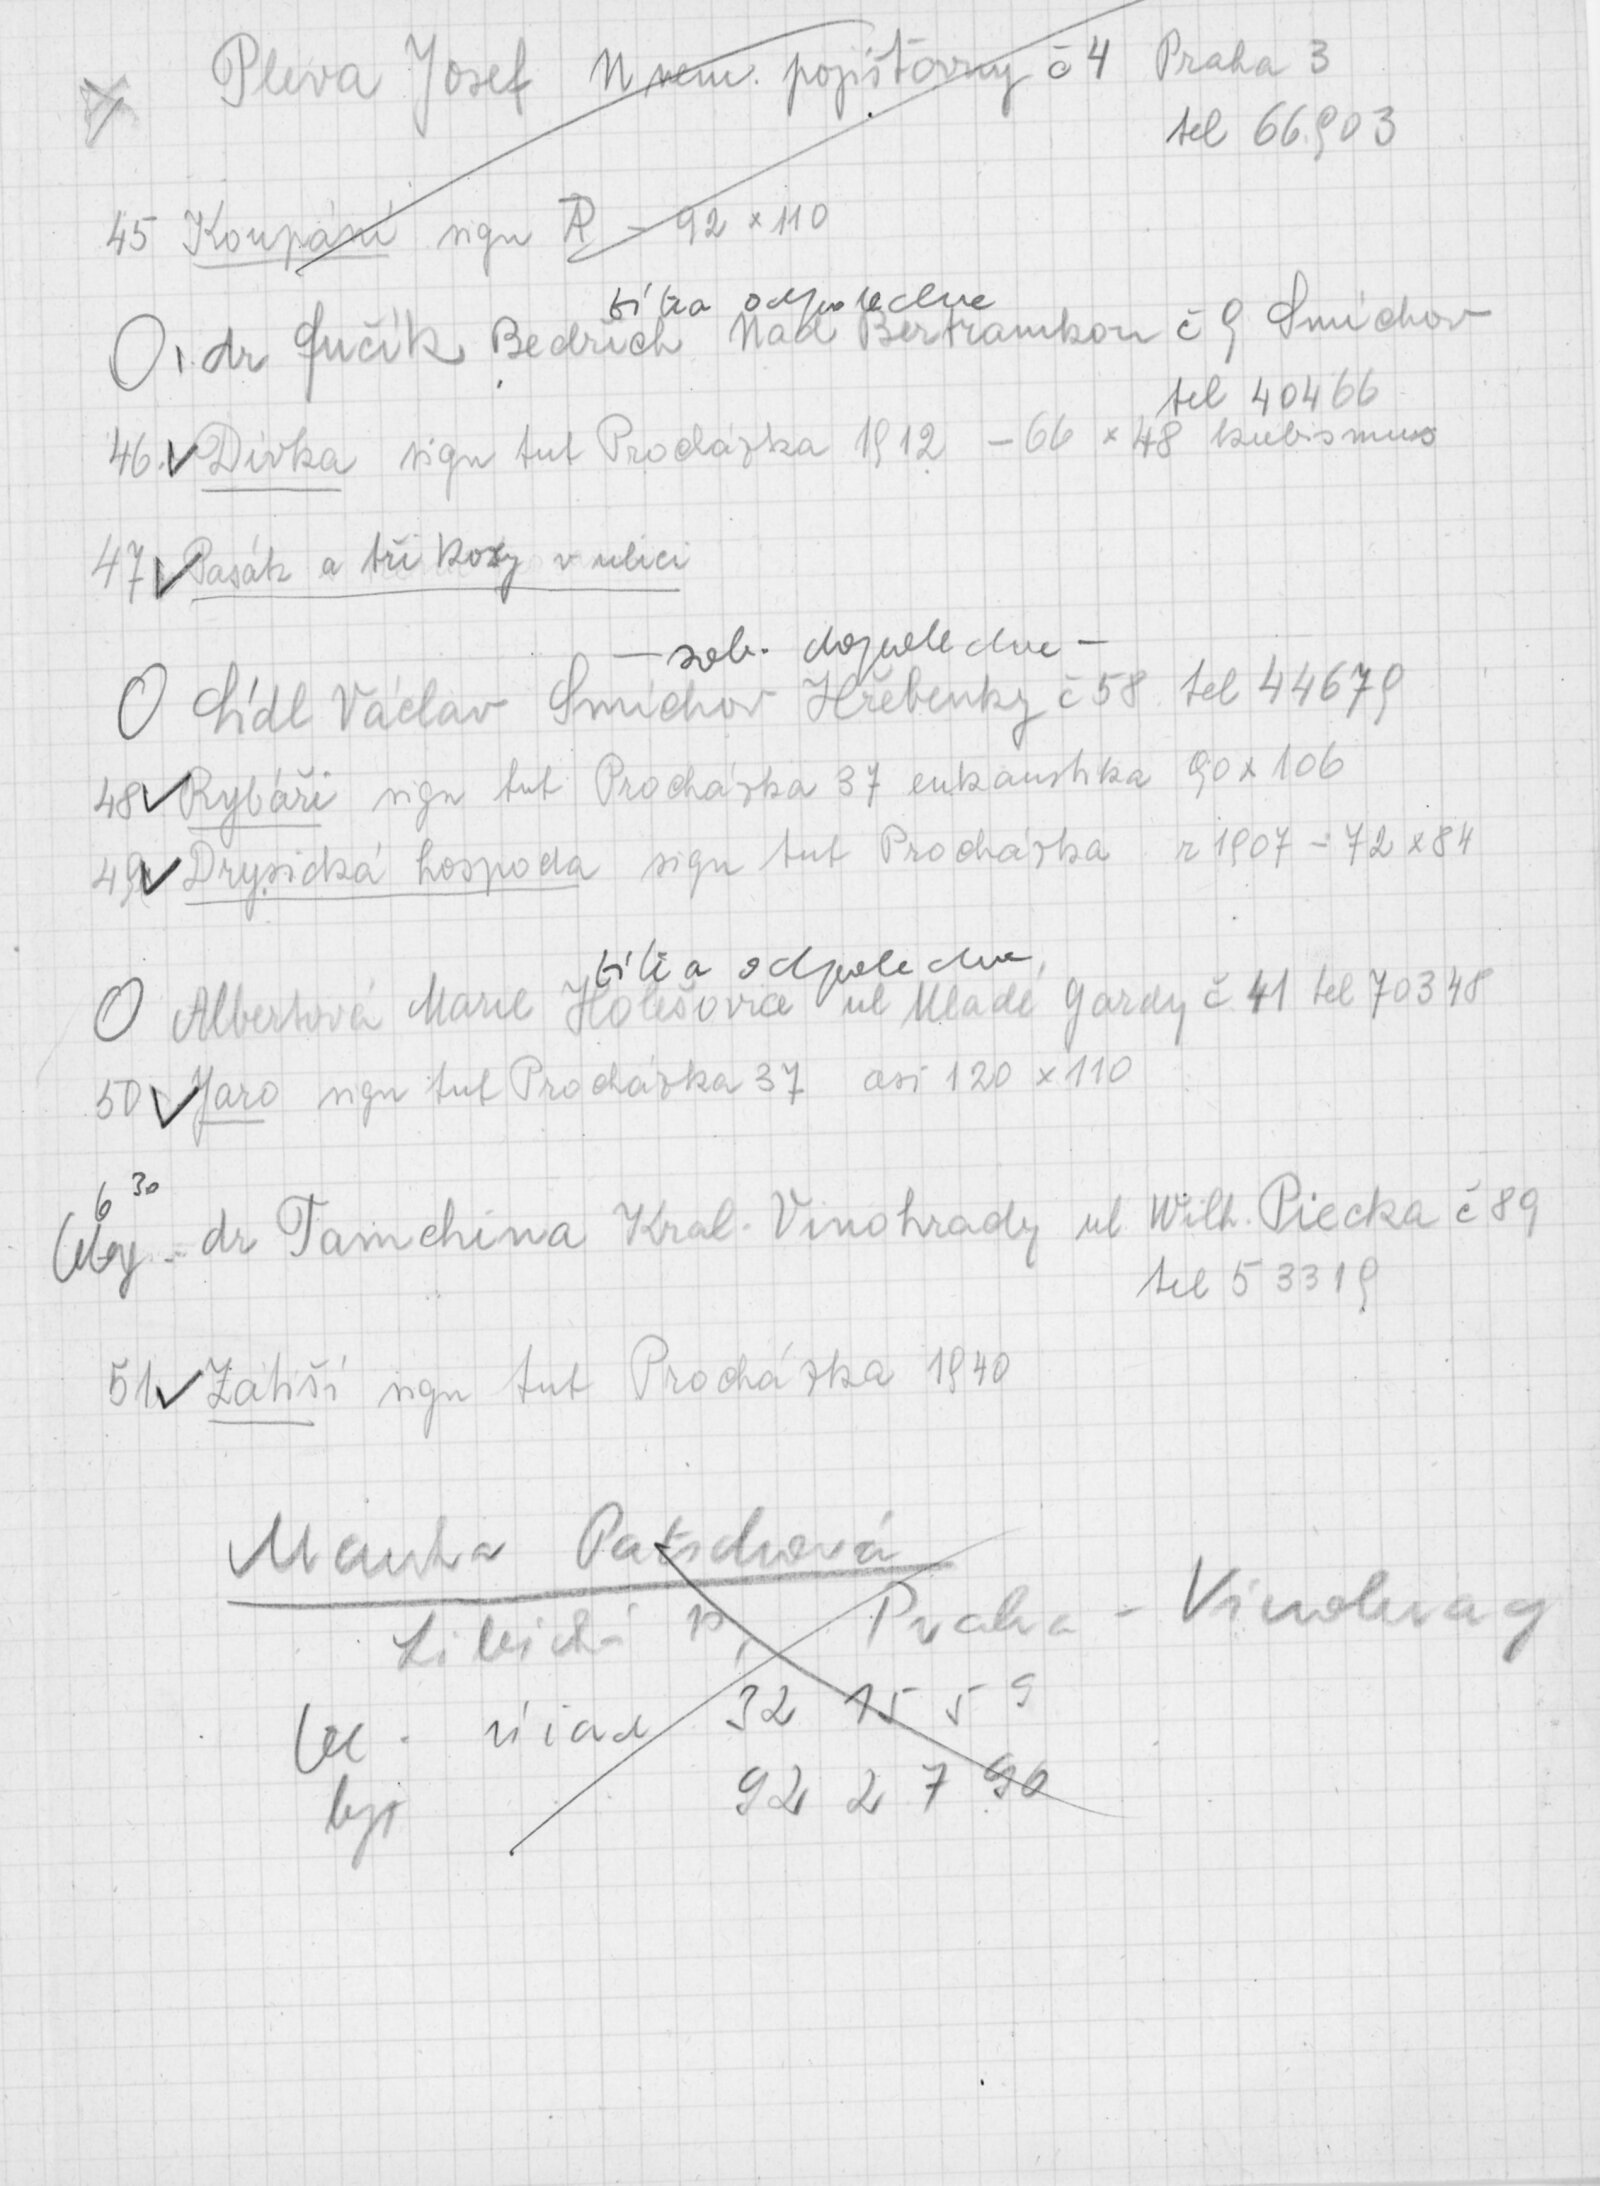 Pleva Josef U nem. pojišťovny č 4 Praha 3
tel 66903
45 Koupání sign AP - 92 x 110
odpoledne
dr Fučík Bedřich Nad Bertramkou č 9 Smíchov
tel 40466
46. Dívka sign tut Procházka 1912 - 66 x 48 kubismus
47 Pasák a tři kozy v ulici
- sob. dopoledne -
Lídl Václav Smíchov Hřebenky č 58 tel 44679
48 Rybáři sign tut Procházka 37 enkaustika 90 x 106
49 Drysická hospoda sign tut Procházka r 1907 - 72 x 84
odpoledne
Albertová Marie Holešovice ul Mladé Gardy č 41 tel 70348
50 Jaro sign tut Procházka 37 asi 120 x 110
6 30
dr Tamchina Král. Vinohrady ul Wilh. Piecka č 89
tel 53319
51 Zátiší sign tut Procházka 1940
Patschová
Libická Praha - Vinohrady
32 15 59
byt 92 27 90